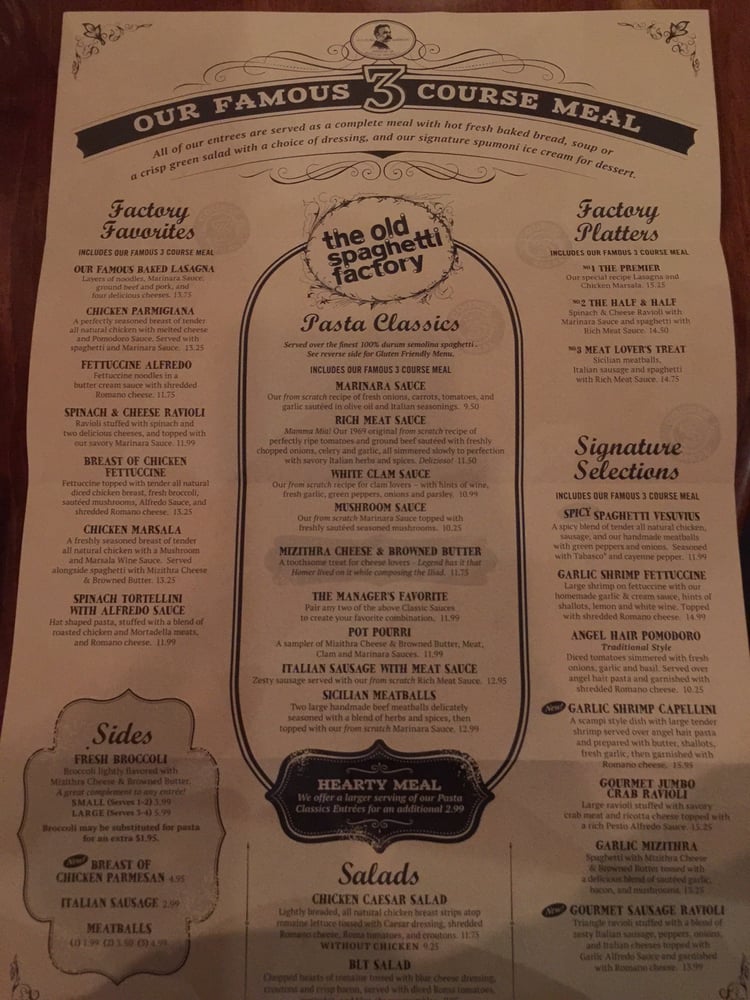 OUR FAMOUS 3 COURSE MEAL
All of our entrees are served as a complete meal with hot fresh baked bread, soup or
a crisp green salad with a choice of dressing, and our signature spumoni ice cream for dessert.
Factory
Favorites
INCLUDES OUR FAMOUS 3 COURSE MEAL
OUR FAMOUS BAKED LASAGNA
Layers of noodles, Marinara Sauce,
ground beef and pork, and
four delicious cheeses. 13.75
CHICKEN PARMIGIANA
A perfectly seasoned breast of tender
all natural chicken with melted cheese
and Pomodoro Sauce. Served with
spaghetti and Marinara Sauce. 13.25
FETTUCCINE ALFREDO
Fettuccine noodles in a
butter cream sauce with shredded
Romano cheese. 11.75
SPINACH & CHEESE RAVIOLI
Ravioli stuffed with spinach and
two delicious cheeses, and topped with
our savory Marinara Sauce. 11.99
BREAST OF CHICKEN
FETTUCCINE
Fettuccine topped with tender all natural
diced chicken breast, fresh broccoli,
sautéed mushrooms, Alfredo Sauce, and
shredded Romano cheese. 13.25
CHICKEN MARSALA
A freshly seasoned breast of tender
all natural chicken with a Mushroom
and Marsala Wine Sauce. Served
alongside spaghetti with Mizithra Cheese
& Browned Butter. 13.25
SPINACH TORTELLINI
WITH ALFREDO SAUCE
Hat shaped pasta, stuffed with a blend of
roasted chicken and Mortadella meats,
and Romano cheese. 11.99
Sides
FRESH BROCCOLI
Broccoli lightly flavored with
Mizithra Cheese & Browned Butter.
A great complement to any entrée!
SMALL (Serves 1-2) 3.99
LARGE (Serves 3-4) 5.99
Broccoli may be substituted for pasta
for an extra $1.95.
New! BREAST OF
CHICKEN PARMESAN 4.95
ITALIAN SAUSAGE 2.99
MEATBALLS
(1) 1.99 (2) 3.50 (3) 4.99
the old
spaghetti
factory
Pasta Classics
Served over the finest 100% durum semolina spaghetti.
See reverse side for Gluten Friendly Menu.
INCLUDES OUR FAMOUS 3 COURSE MEAL
MARINARA SAUCE
Our from scratch recipe of fresh onions, carrots, tomatoes, and
garlic sautéed in olive oil and Italian seasonings. 9.50
RICH MEAT SAUCE
Mamma Mia! Our 1969 original from scratch recipe of
perfectly ripe tomatoes and ground beef sautéed with freshly
chopped onions, celery and garlic, all simmered slowly to perfection
with savory Italian herbs and spices. Delizioso! 11.50
WHITE CLAM SAUCE
Our from scratch recipe for clam lovers – with hints of wine,
fresh garlic, green peppers, onions and parsley. 10.99
MUSHROOM SAUCE
Our from scratch Marinara Sauce topped with
freshly sautéed seasoned mushrooms. 10.25
MIZITHRA CHEESE & BROWNED BUTTER
A toothsome treat for cheese lovers – Legend has it that
Homer lived on it while composing the Iliad. 11.75
THE MANAGER'S FAVORITE
Pair any two of the above Classic Sauces
to create your favorite combination. 11.99
POT POURRI
A sampler of Mizithra Cheese & Browned Butter, Meat,
Clam and Marinara Sauces. 11.99
ITALIAN SAUSAGE WITH MEAT SAUCE
Zesty sausage served with our from scratch Rich Meat Sauce. 12.95
SICILIAN MEATBALLS
Two large handmade beef meatballs delicately
seasoned with a blend of herbs and spices, then
topped with our from scratch Marinara Sauce. 12.99
HEARTY MEAL
We offer a larger serving of our Pasta
Classics Entrées for an additional 2.99
Salads
CHICKEN CAESAR SALAD
Lightly breaded, all natural chicken breast strips atop
romaine lettuce tossed with Caesar dressing, shredded
Romano cheese, Roma tomatoes, and croutons. 11.75
WITHOUT CHICKEN 9.25
BLT SALAD
Chopped hearts of romaine tossed with blue cheese dressing,
croutons and crisp bacon, served with diced Roma tomatoes,
Factory
Platters
INCLUDES OUR FAMOUS 3 COURSE MEAL
No1 THE PREMIER
Our special recipe Lasagna and
Chicken Marsala. 15.25
No2 THE HALF & HALF
Spinach & Cheese Ravioli with
Marinara Sauce and spaghetti with
Rich Meat Sauce. 14.50
No3 MEAT LOVER'S TREAT
Sicilian meatballs,
Italian sausage and spaghetti
with Rich Meat Sauce. 14.75
Signature
Selections
INCLUDES OUR FAMOUS 3 COURSE MEAL
SPICY SPAGHETTI VESUVIUS
A spicy blend of tender all natural chicken,
sausage, and our handmade meatballs
with green peppers and onions. Seasoned
with Tabasco® and cayenne pepper. 11.99
GARLIC SHRIMP FETTUCCINE
Large shrimp on fettuccine with our
homemade garlic & cream sauce, hints of
shallots, lemon and white wine. Topped
with shredded Romano cheese. 14.99
ANGEL HAIR POMODORO
Traditional Style
Diced tomatoes simmered with fresh
onions, garlic and basil. Served over
angel hair pasta and garnished with
shredded Romano cheese. 10.25
New! GARLIC SHRIMP CAPELLINI
A scampi style dish with large tender
shrimp served over angel hair pasta
and prepared with butter, shallots,
fresh garlic, then garnished with
Romano cheese. 15.95
GOURMET JUMBO
CRAB RAVIOLI
Large ravioli stuffed with savory
crab meat and ricotta cheese topped with
a rich Pesto Alfredo Sauce. 15.25
GARLIC MIZITHRA
Spaghetti with Mizithra Cheese
& Browned Butter tossed with
a delicious blend of sautéed garlic,
bacon, and mushrooms. 13.25
New! GOURMET SAUSAGE RAVIOLI
Triangle ravioli stuffed with a blend of
zesty Italian sausage, peppers, onions,
and Italian cheeses topped with
Garlic Alfredo Sauce and garnished
with Romano cheese. 13.99